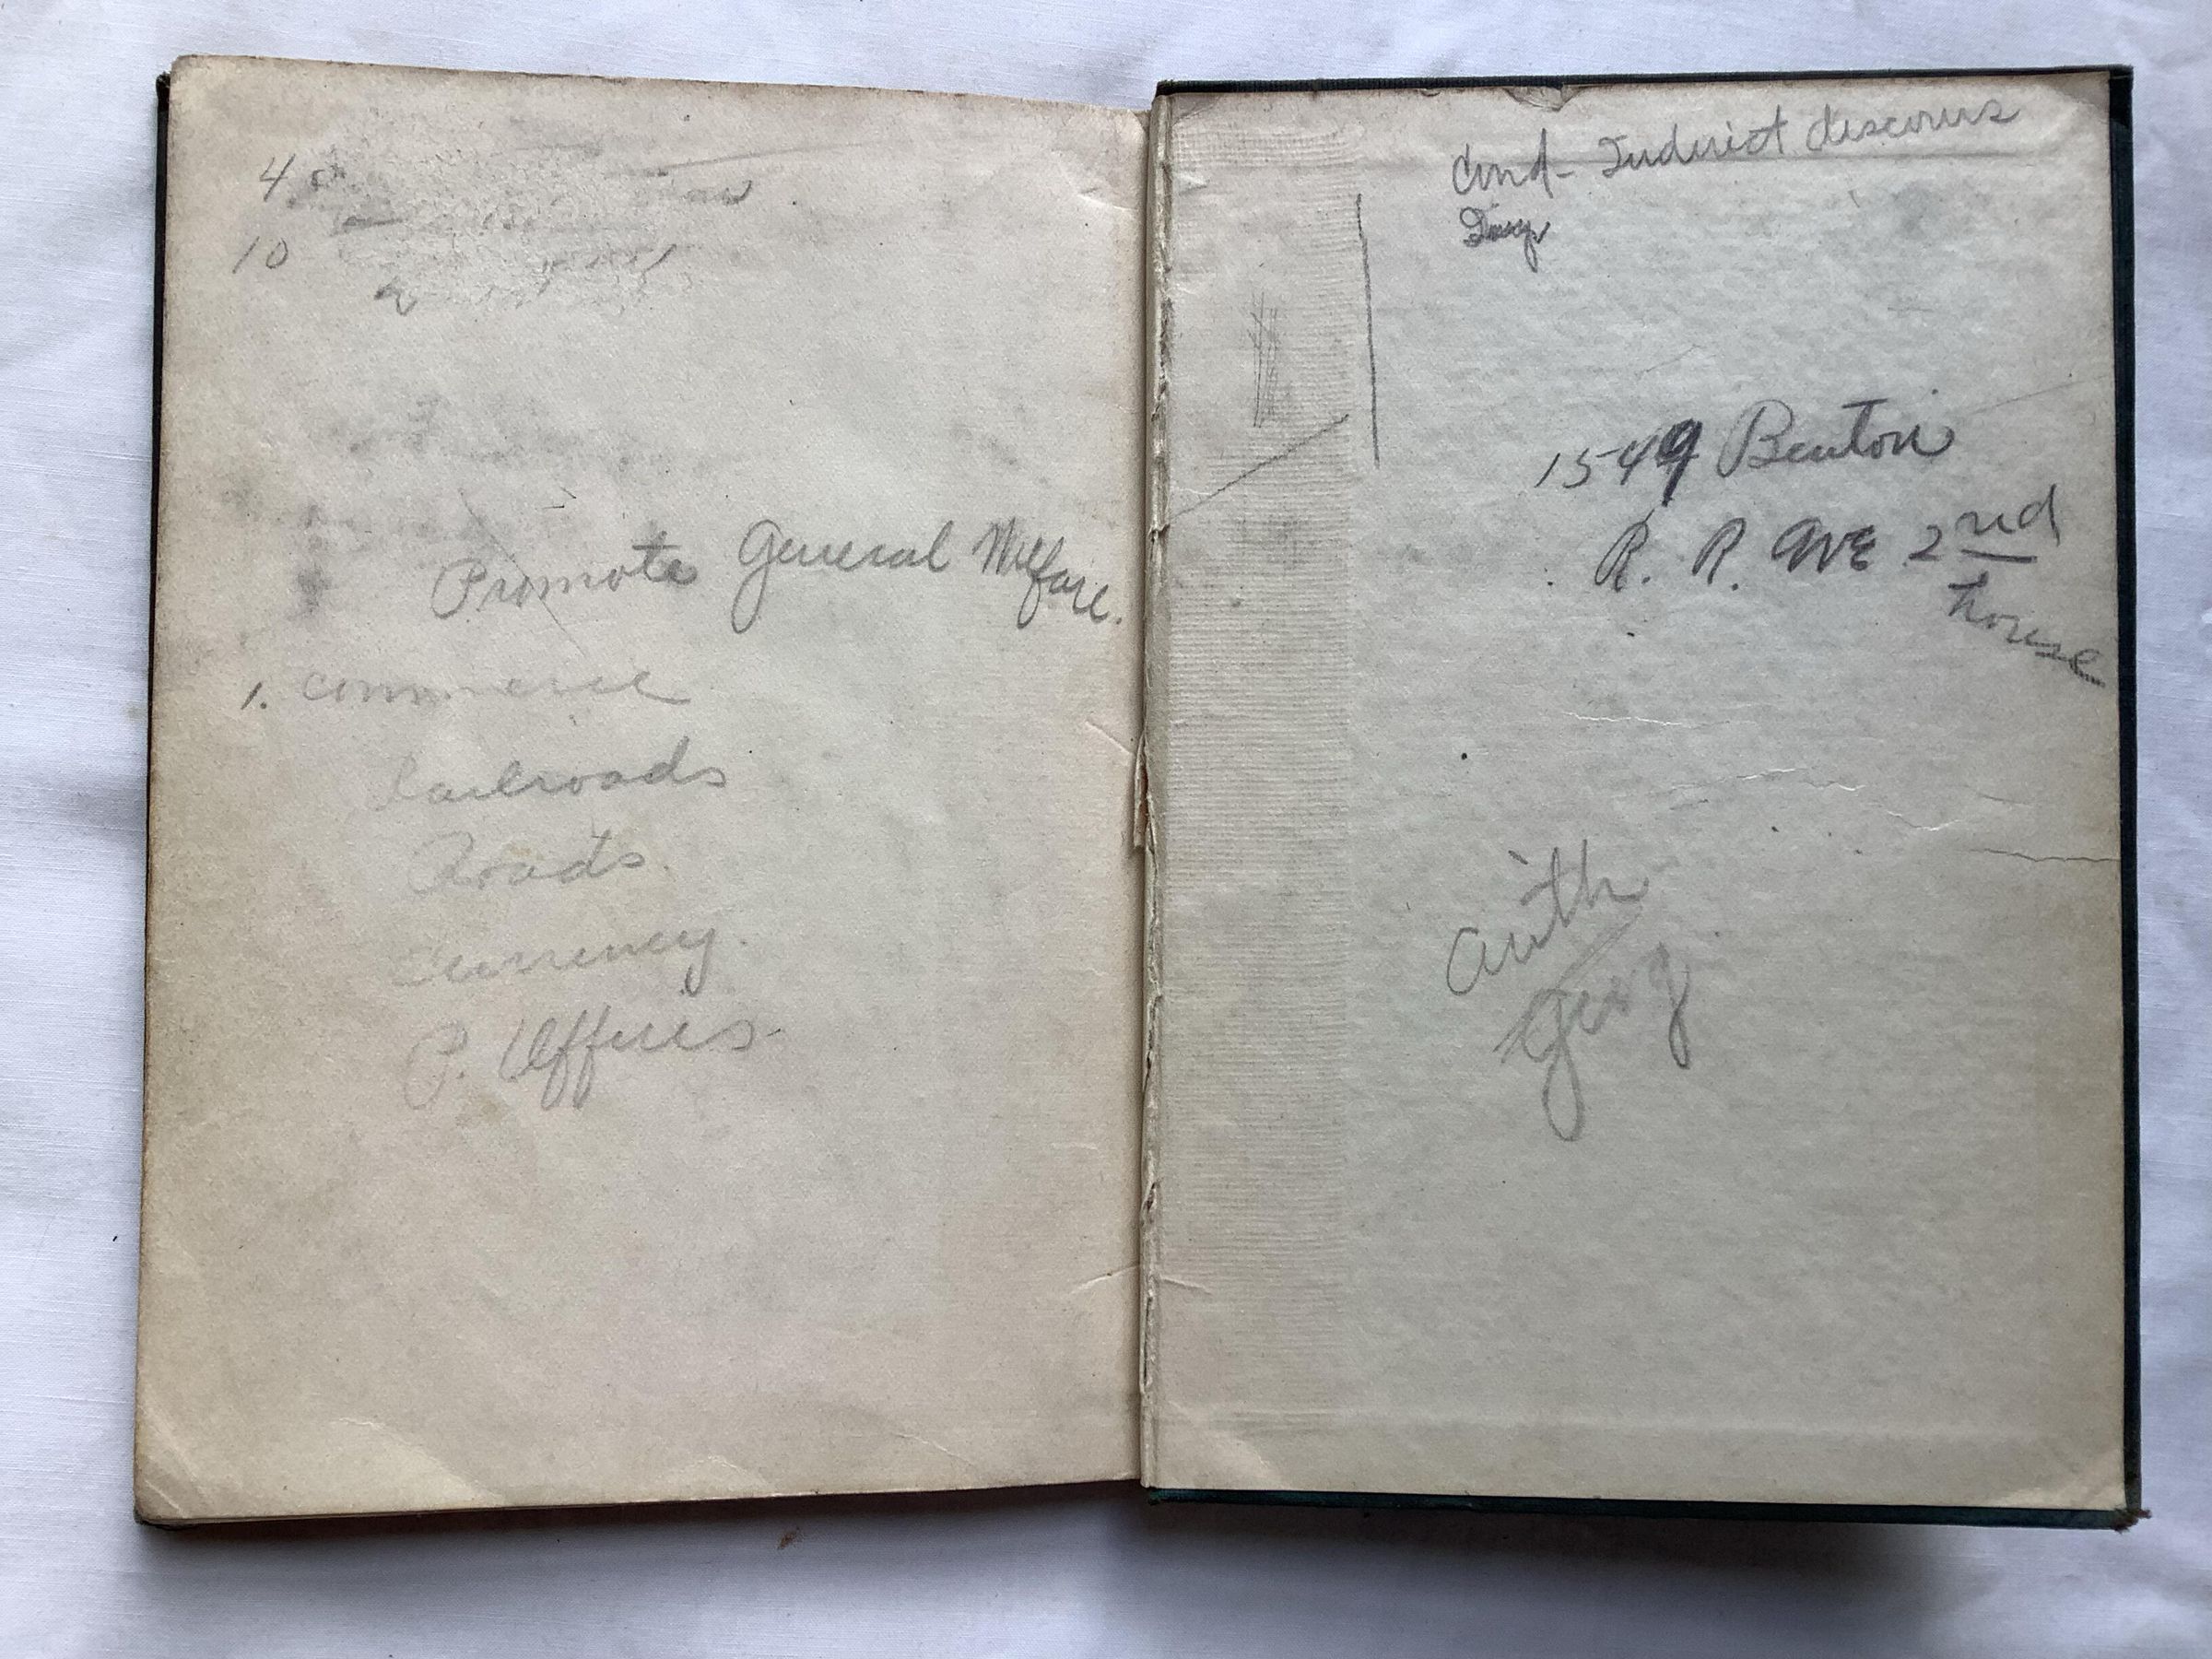 4
10
Promote General Welfare.
1. Commerce
Railroads
Roads
Currency.
P. Offices
Cond- Indirect discours
1549 Benton
R. R. AVE 2nd
house
arith
Geog